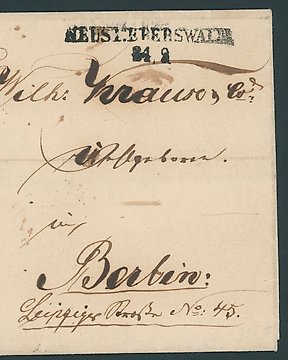 NEUST.EBERSWALDE
24 9
Wilh: Krause & Co:
Wohlgeboren.
in
Berlin:
Leipziger Straße No: 45.